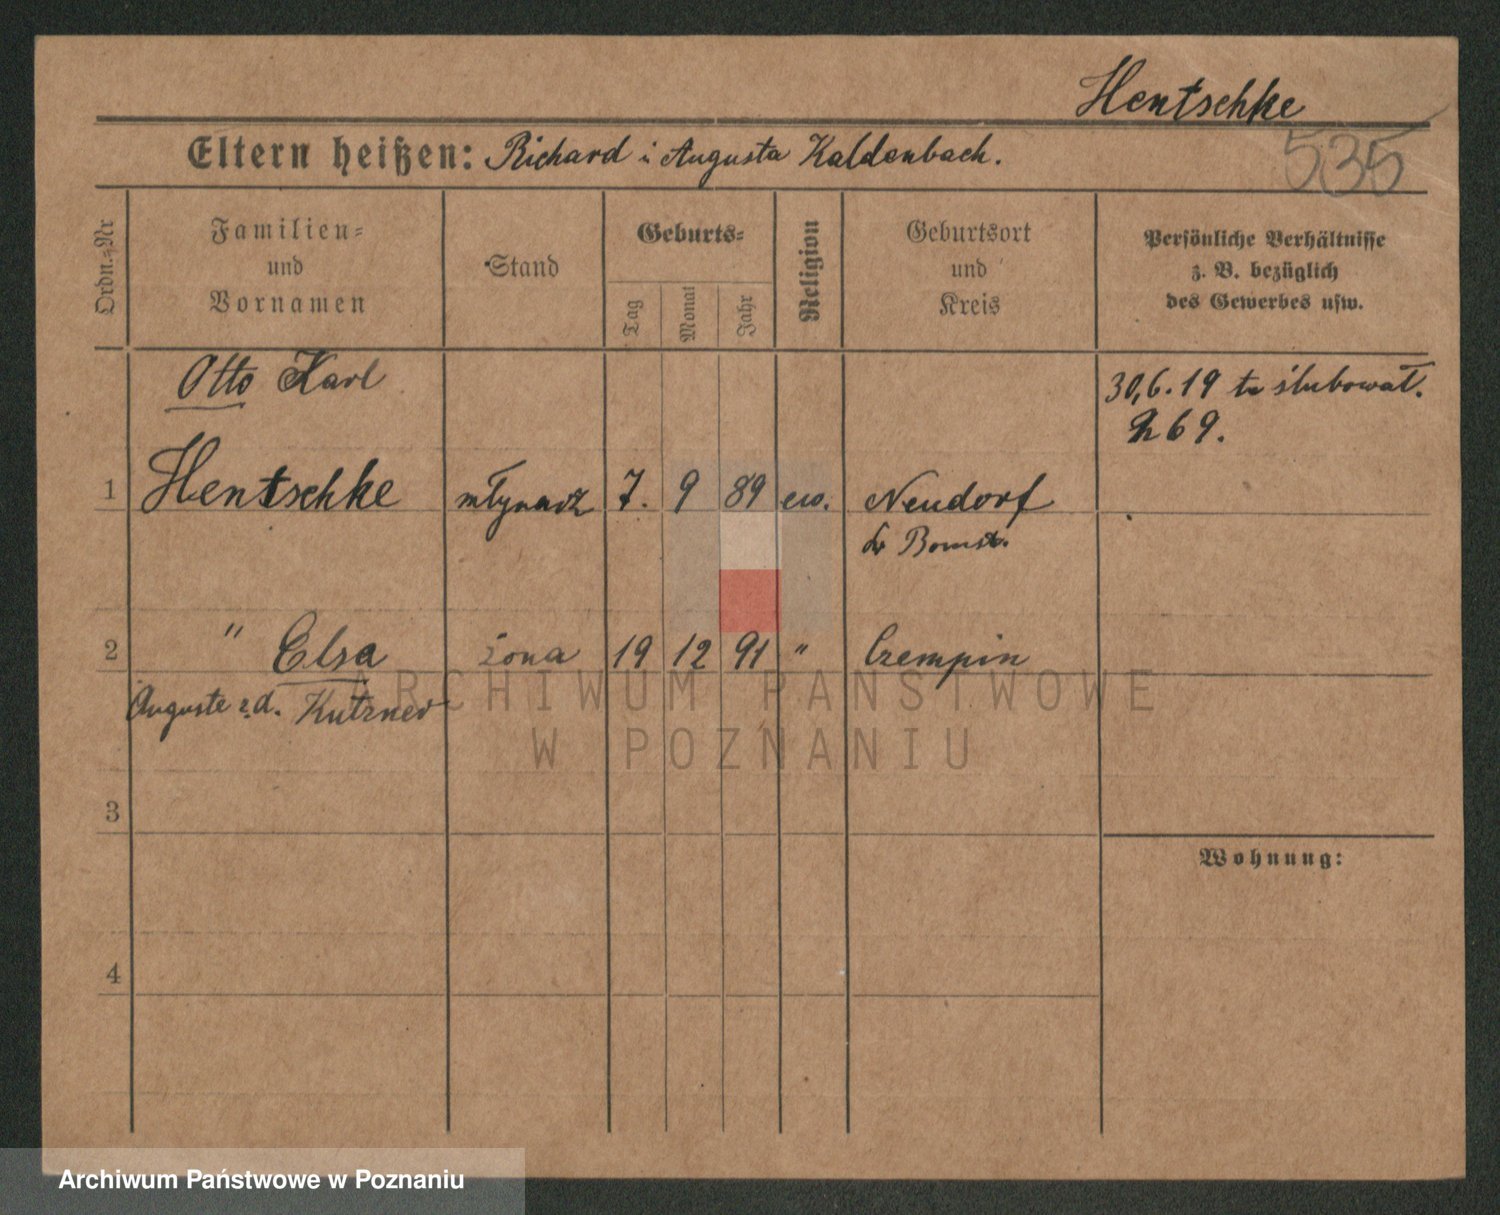 Hentschke
535
Eltern heißen: Richard i Augusta Kaldenbach.
Ordn.=Nr
Familien=
und
Vornamen
Stand
Geburts=
Tag
Monat
Jahr
Religion
Geburtsort
und
Kreis
Persönliche Verhältnisse
z. B. bezüglich
des Gewerbes usw.
Otto Karl
30,6.19 tu ślubował.
69.
1 Hentschke młynarz 7. 9 89 ew. Neudorf
kr Bomst.
2 " Elsa żona 19 12 91 " Czempin
Auguste z d. Kutzner
ARCHIWUM PAŃSTWOWE
W POZNANIU
3
Wohnung:
4
Archiwum Państwowe w Poznaniu